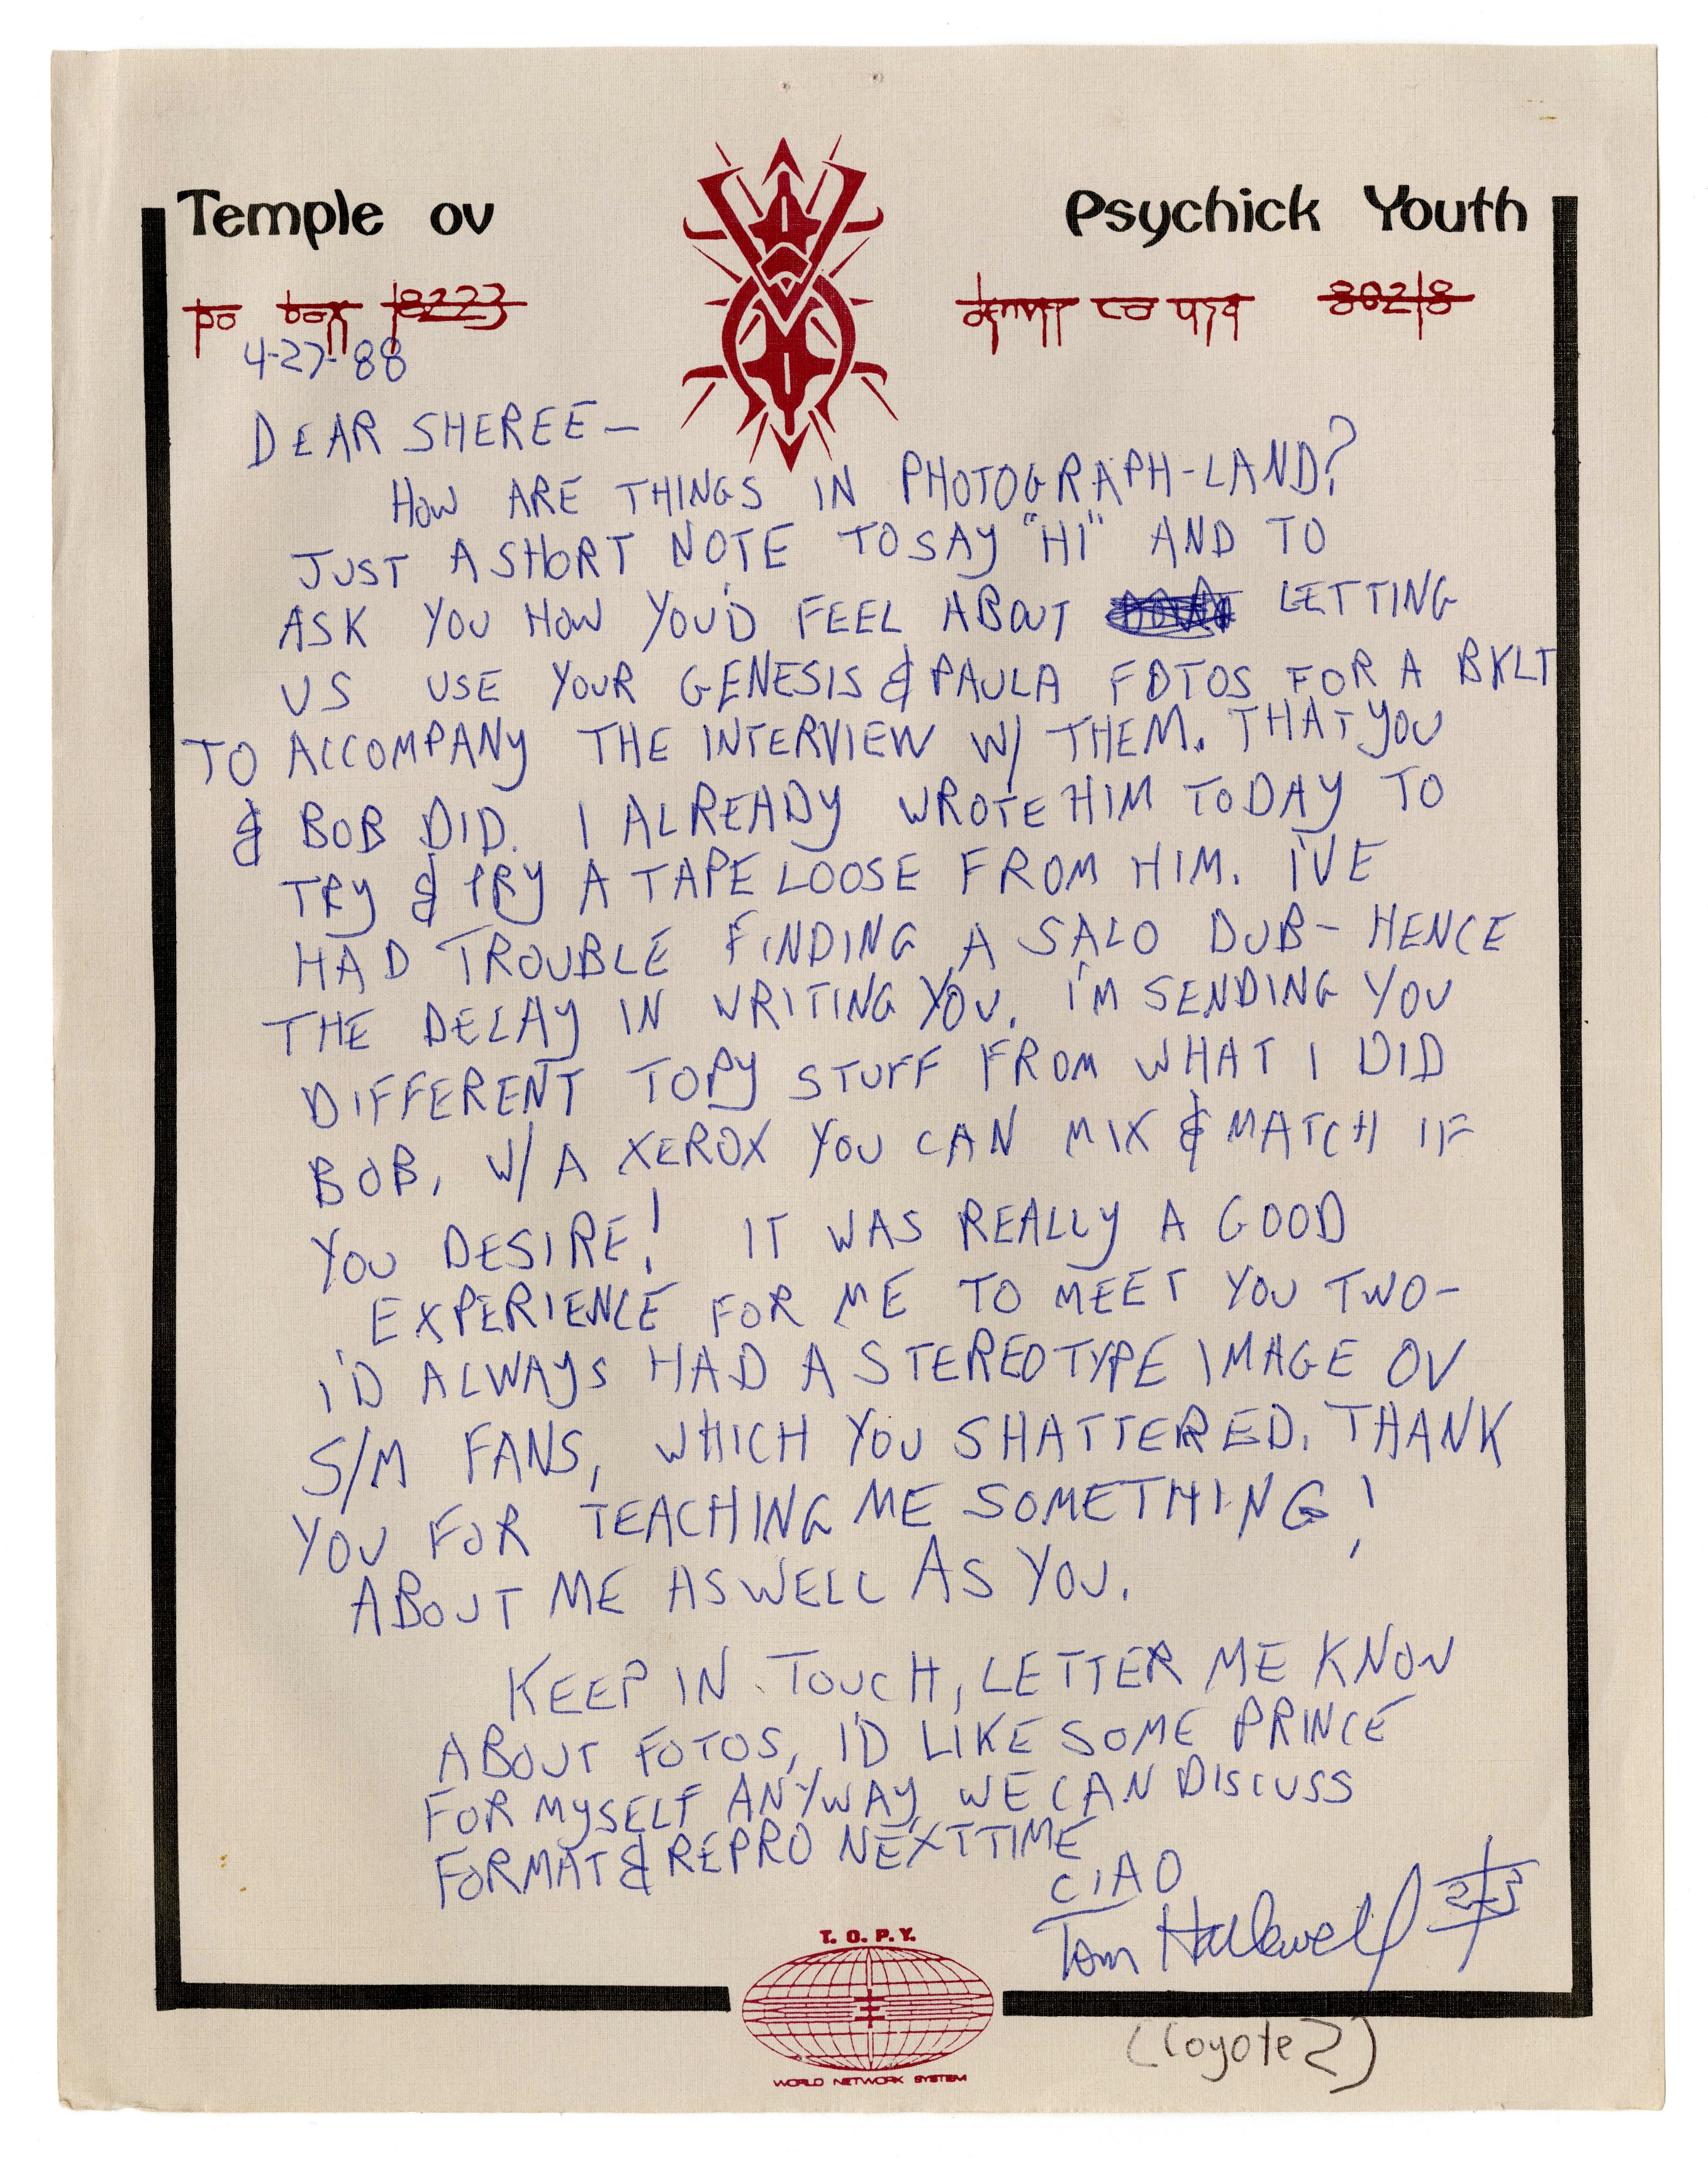 Temple ov Psychick Youth
po box 18223 denver co usa 80218
4-27-88
DEAR SHEREE—
HOW ARE THINGS IN PHOTOGRAPH-LAND?
JUST A SHORT NOTE TO SAY "HI" AND TO
ASK YOU HOW YOU'D FEEL ABOUT LETTING
US USE YOUR GENESIS & PAULA FOTOS FOR A BKLT
TO ACCOMPANY THE INTERVIEW W/ THEM. THAT YOU
& BOB DID. I ALREADY WROTE HIM TODAY TO
TRY & PRY A TAPE LOOSE FROM HIM. I'VE
HAD TROUBLE FINDING A SALO DUB - HENCE
THE DELAY IN WRITING YOU. I'M SENDING YOU
DIFFERENT TOPY STUFF FROM WHAT I DID
BOB, W/ A XEROX YOU CAN MIX & MATCH IF
YOU DESIRE! IT WAS REALLY A GOOD
EXPERIENCE FOR ME TO MEET YOU TWO-
I'D ALWAYS HAD A STEREOTYPE IMAGE OV
S/M FANS, WHICH YOU SHATTERED. THANK
YOU FOR TEACHING ME SOMETHING!
ABOUT ME AS WELL AS YOU.
KEEP IN TOUCH, LETTER ME KNOW
ABOUT FOTOS, I'D LIKE SOME PRINCE
FOR MYSELF ANYWAY, WE CAN DISCUSS
FORMAT & REPRO NEXT TIME
CIAO
Tom Hallewell 23
T.O.P.Y.
WORLD NETWORK SYSTEM
(Coyote 2)